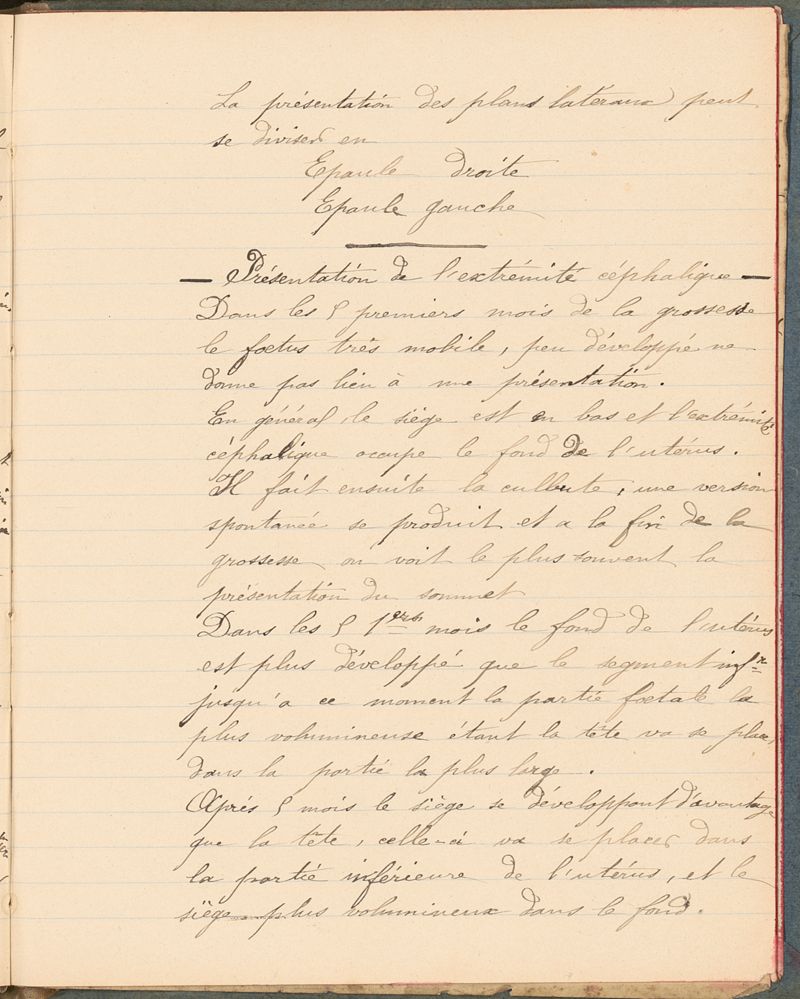 La présentation des plans latéraux peut
se diviser en
Epaule droite
Epaule gauche
— Présentation de l'extrémité céphalique —
Dans les 5 premiers mois de la grossesse
le fœtus très mobile, peu développé ne
donne pas lieu à une présentation.
En général, le siège est en bas et l'extrémité
céphalique occupe le fond de l'utérus.
Il fait ensuite la culbute ; une version
spontanée se produit et a la fin de la
grossesse on voit le plus souvent la
présentation du sommet
Dans les 5 1ers mois le fond de l'utérus
est plus développé que le segment infr
jusqu'a ce moment la partie fœtale la
plus volumineuse étant la tête va se placer
dans la partie la plus large.
Après 5 mois le siège se développant d'avantage
que la tête, celle-ci va se placer dans
la partie inférieure de l'utérus, et le
siège plus volumineux dans le fond.